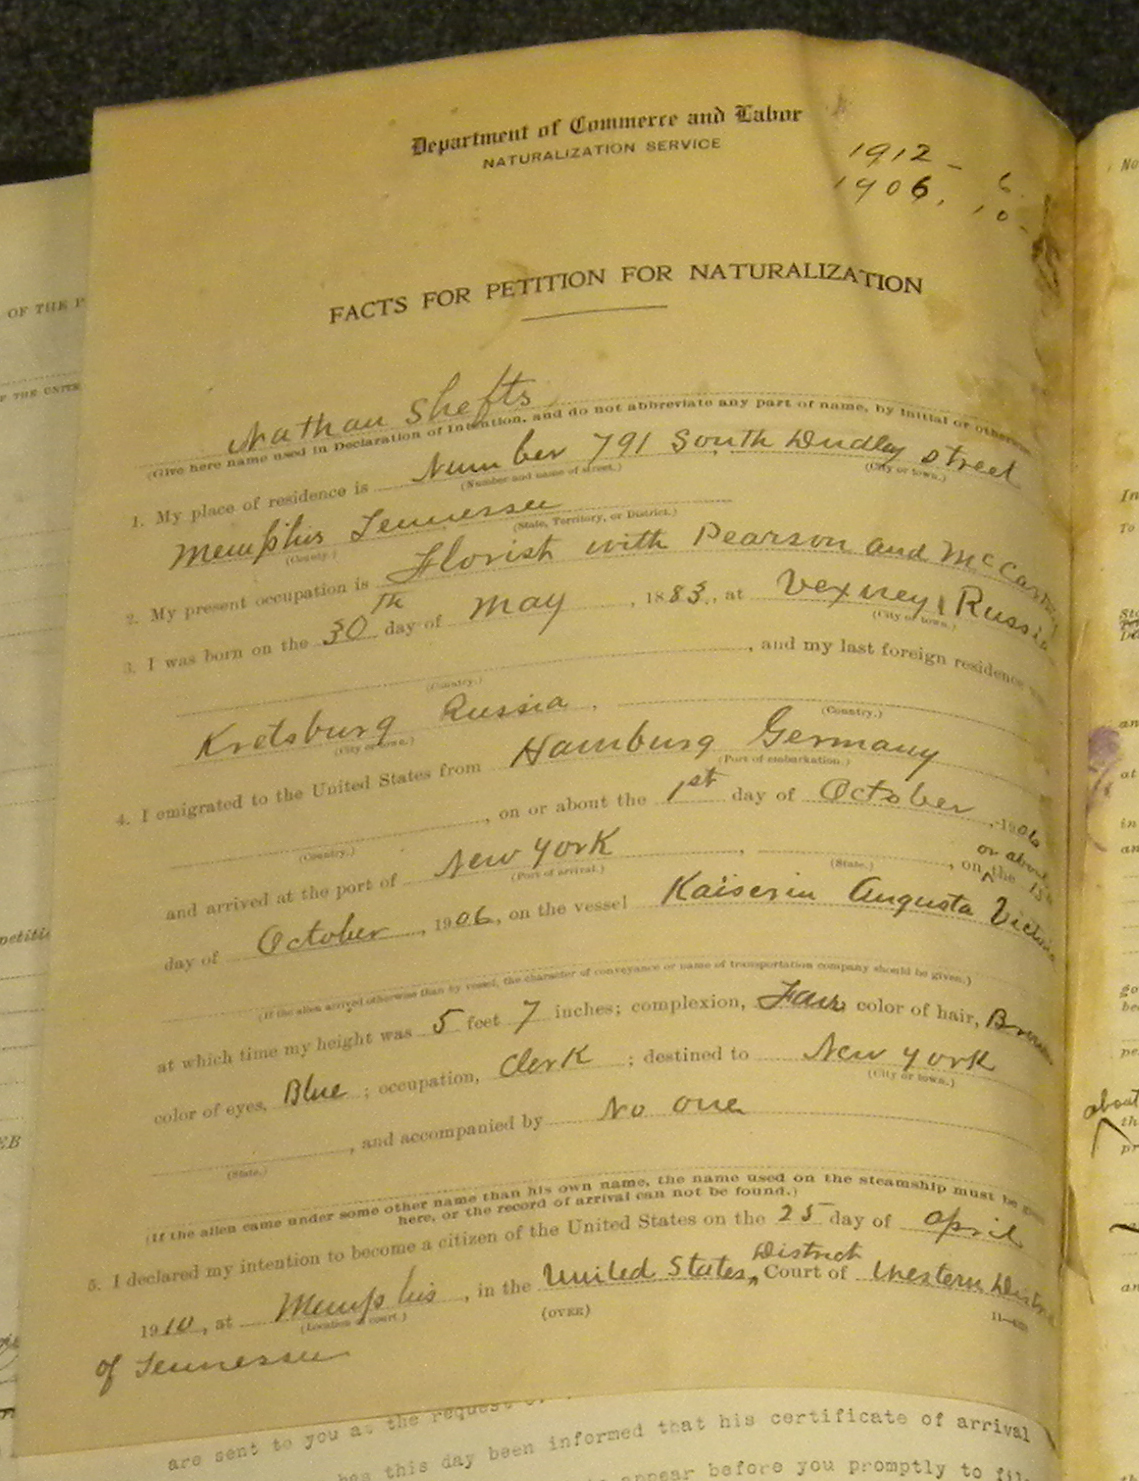 Department of Commerce and Labor
NATURALIZATION SERVICE
1912 - 6
1906. 10
FACTS FOR PETITION FOR NATURALIZATION
Nathan Shefts
(Give here name used in Declaration of Intention, and do not abbreviate any part of name, by initial or otherwise
1. My place of residence is Number 791 South Dudley street
(Number and name of street.) (City or town.)
Memphis Tennessee
(County.) (State, Territory, or District.)
2. My present occupation is Florist with Pearson and
3. I was born on the 30th day of May, 1883, at Vexney, Russia
(City or town.)
, and my last foreign residence
(Country.)
Kretsburg Russia,
(City or town.) (Country.)
4. I emigrated to the United States from Hamburg Germany
(Port of embarkation.)
, on or about the 1st day of October, 1906
(Country.) or about
and arrived at the port of New York, , on the 15th
(Port of arrival.) (State.)
day of October, 1906, on the vessel Kaiserin Augusta Victoria
(If the alien arrived otherwise than by vessel, the character of conveyance or name of transportation company should be given.)
at which time my height was 5 feet 7 inches; complexion, Fair; color of hair, Brown
color of eyes, Blue; occupation, Clerk; destined to New York
(City or town.)
, and accompanied by No one
(State.)
(If the alien came under some other name than his own name, the name used on the steamship must be
here, or the record of arrival can not be found.)
5. I declared my intention to become a citizen of the United States on the 25 day of April
District
1910, at Memphis, in the United States Court of Western
(Location of court.) (OVER)
of Tennessee
are sent to you at the request
has this day been informed that his certificate of arrival
appear before you promptly to
OF THE P
about